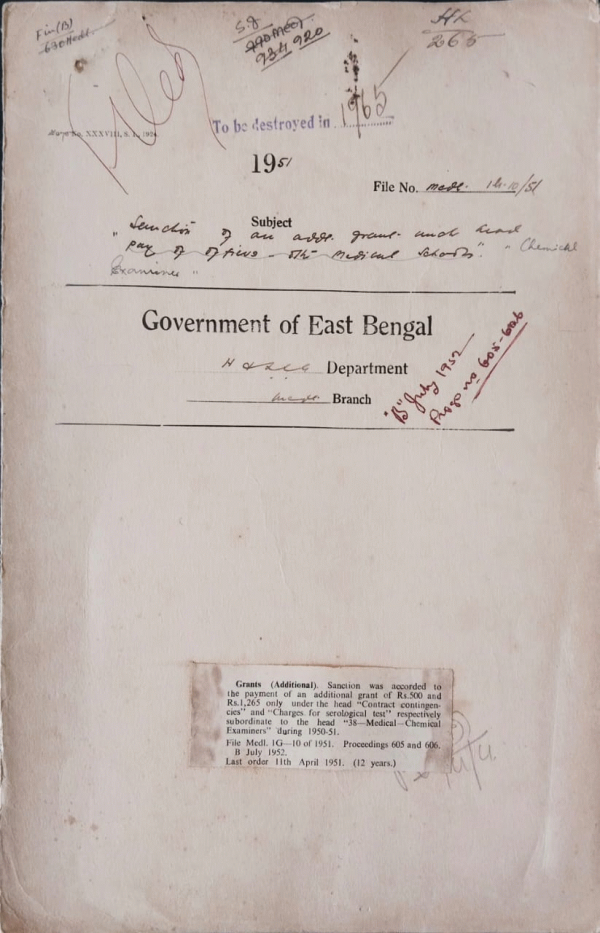 Fin(B)
630 Medl.
S.g
770 Medl
934 920
265
Filed
To be destroyed in 1965
1951
File No. Medl. 1G-10/51
Subject
"Sanction of an addl. grant under head
pay of officers - Medical Schools". "Chemical
Examiner"
Government of East Bengal
Department
Medl. Branch
"B" July 1952
Progs no 605-606
Grants (Additional). Sanction was accorded to
the payment of an additional grant of Rs.500 and
Rs.1,265 only under the head "Contract contingen-
cies" and "Charges for serological test" respectively
subordinate to the head "38—Medical—Chemical
Examiners" during 1950-51.
File Medl. 1G—10 of 1951. Proceedings 605 and 606.
B July 1952.
Last order 11th April 1951. (12 years.)